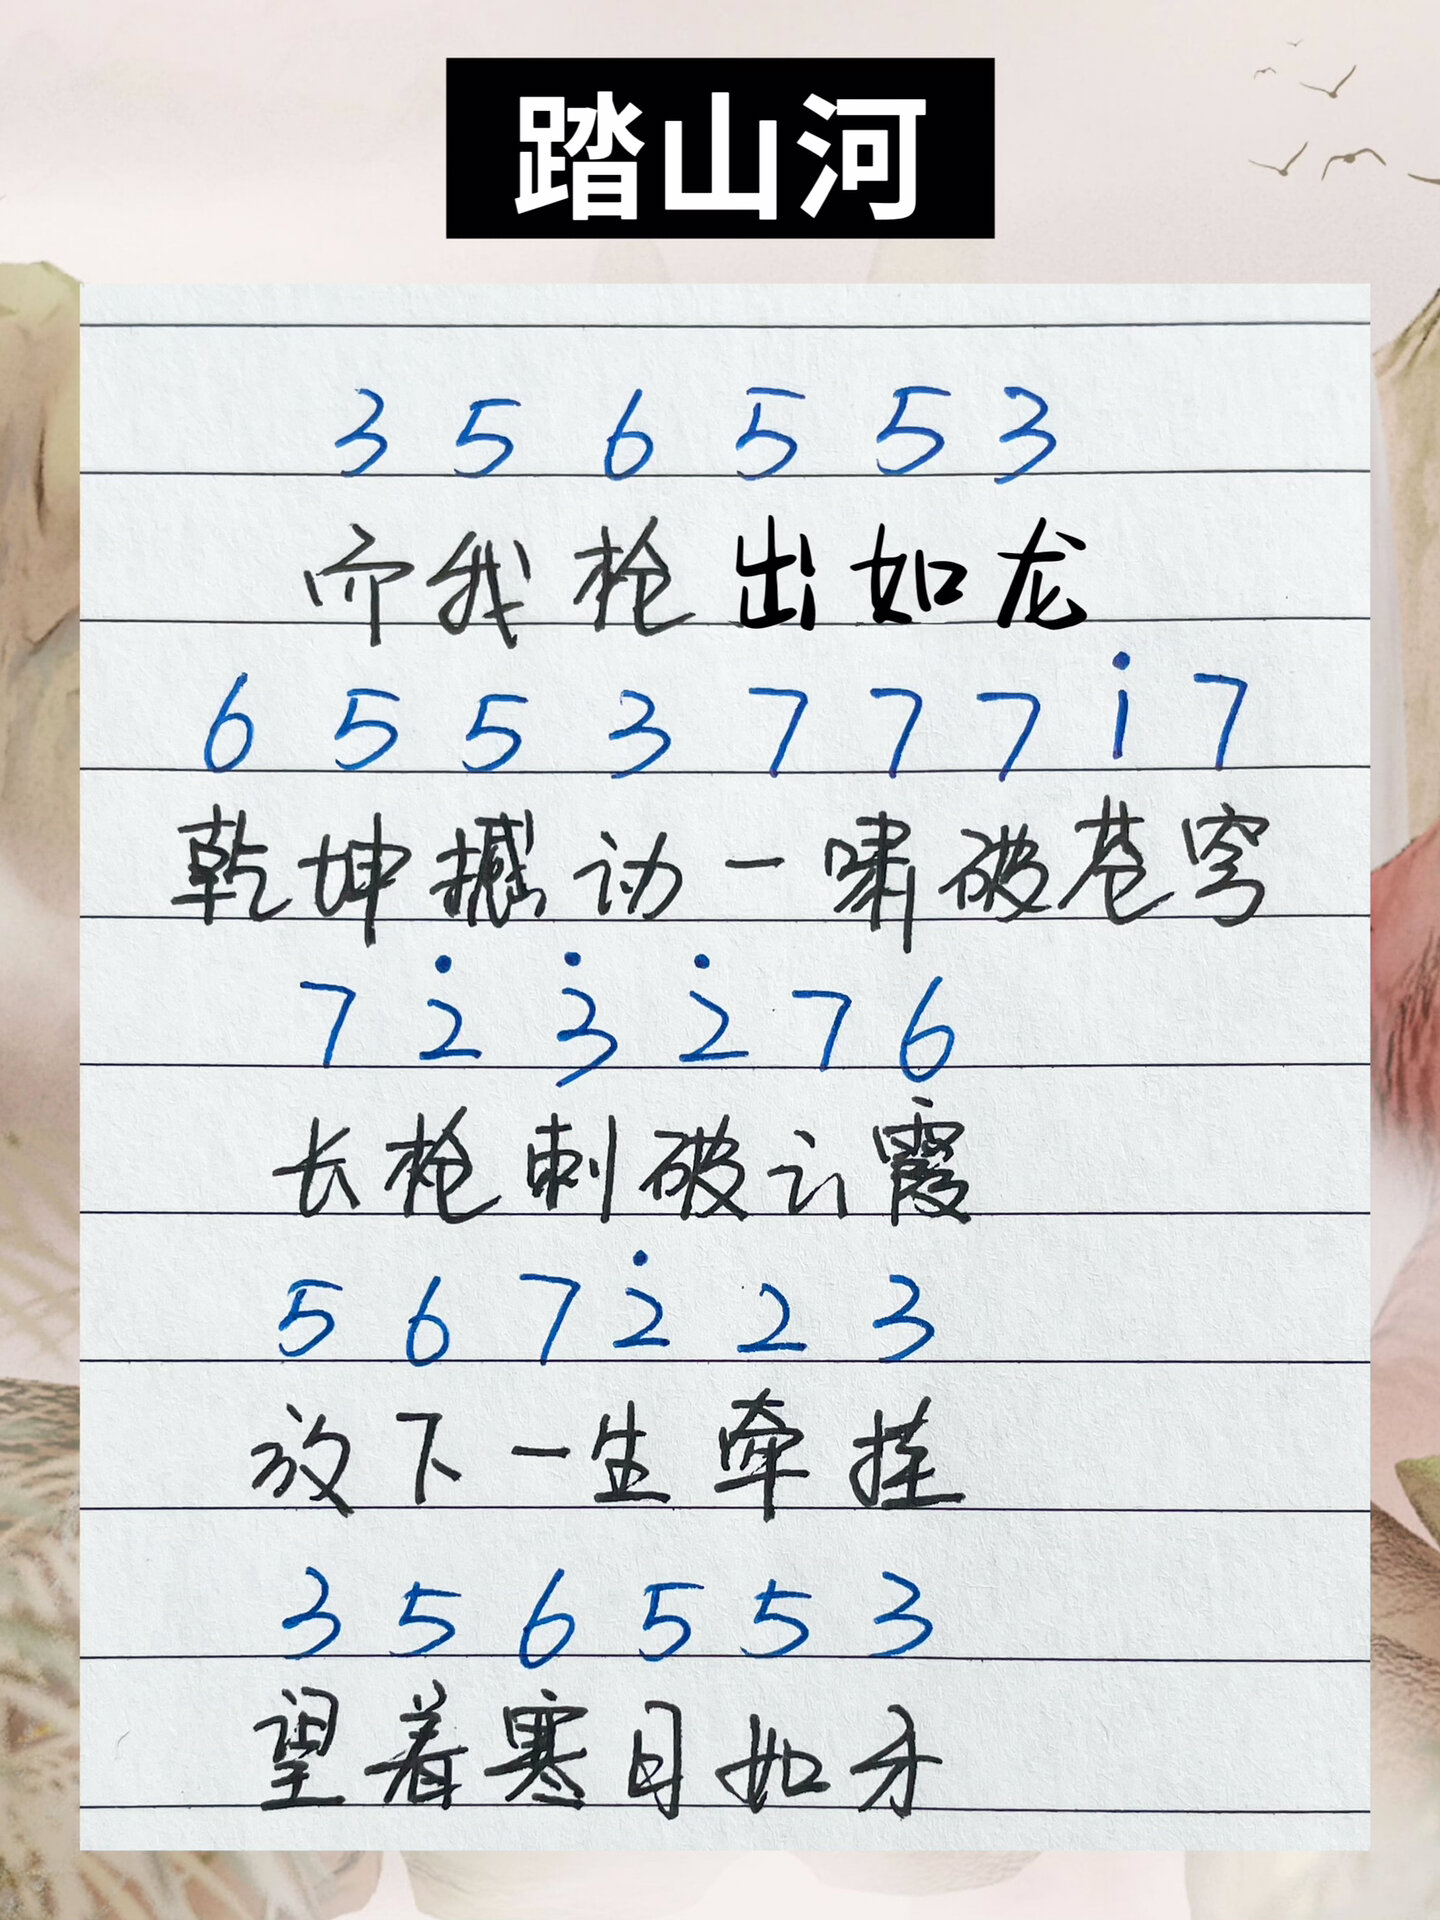 踏山河
3 5 6 5 5 3
而我枪出如龙
6 5 5 3 7 7 7 i 7
乾坤撼动一啸破苍穹
7 2̇ 3̇ 2̇ 7 6
长枪刺破云霞
5 6 7 2̇ 2 3
放下一生牵挂
3 5 6 5 5 3
望着寒月如牙